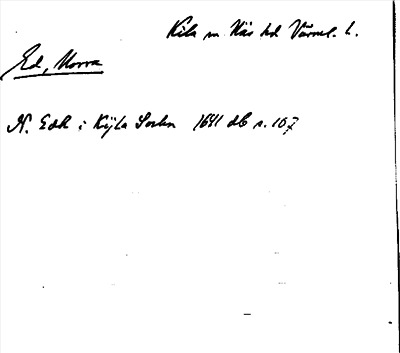 Kila sn Näs hd Värml. l.
Ed, Norra
N. Edh i Kijla Sochn 1641 db s. 107